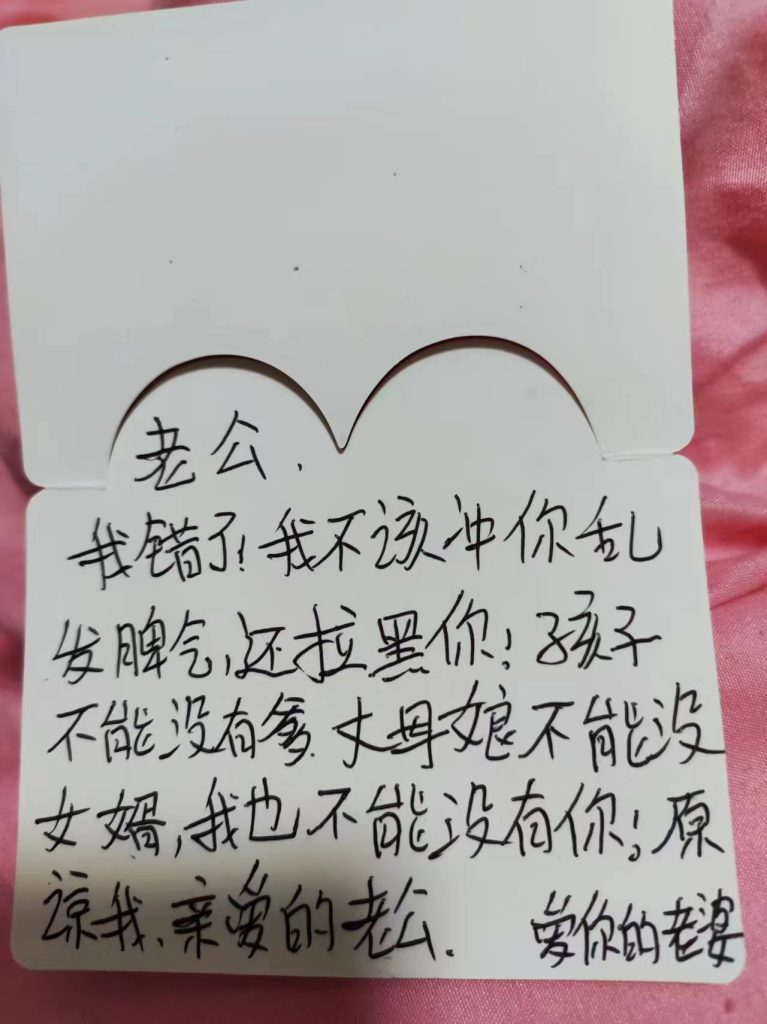 老公.
我错了!我不该冲你乱
发脾气,还拉黑你!孩子
不能没有爹.丈母娘不能没
女婿,我也不能没有你!原
谅我.亲爱的老公. 爱你的老婆